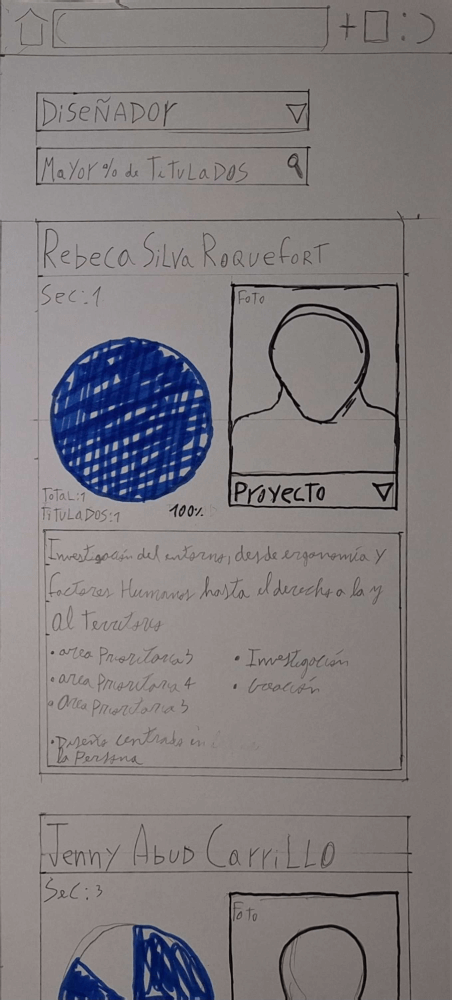 DiSEÑADOr
MaYor % de TiTuLaDOS
Rebeca SiLva RoquefoRT
Sec:1
FoTo
ToTaL:1
TiTuLaDOS:1
100%
PrOyecTo
Investigación del entorno, desde ergonomía y
factores Humanos hasta el derecho a la y
al Territorio
• area Prioritaria 3
• area Prioritaria 4
• Area Prioritaria 5
• Diseño centrado en
la Persona
• Investigación
• Creación
Jenny AbuD CarriLLO
Sec:3
FoTo